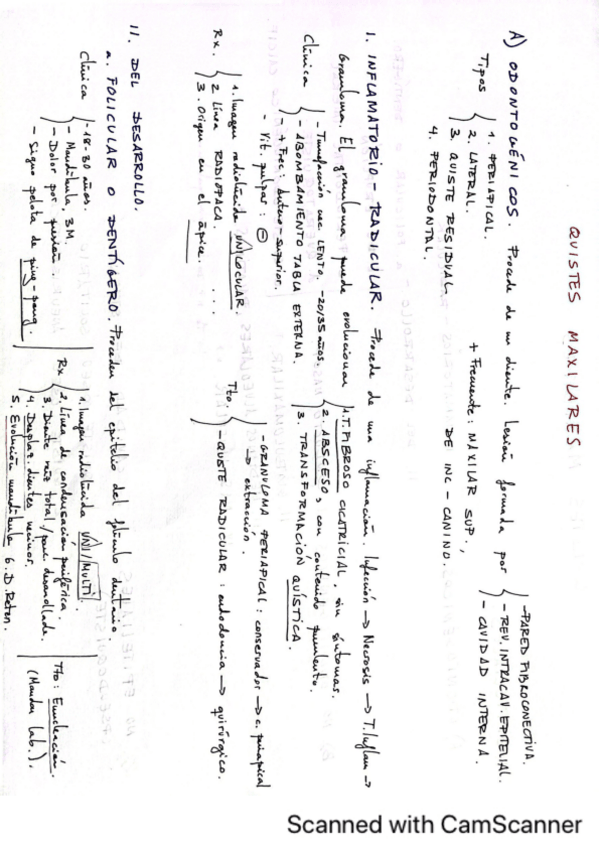 QUISTES MAXILARES
A) ODONTOGÉNICOS. Procede de un diente. Lesión formada por
- PARED FIBROCONECTIVA.
- REV. INTRACAV. EPITELIAL.
- CAVIDAD INTERNA.
Tipos
1. PERIAPICAL.
2. LATERAL.
3. QUISTE RESIDUAL
4. PERIODONTAL.
+ Frecuente: MAXILAR SUP.,
DE INC - CANINO.
1. INFLAMATORIO - RADICULAR. Procede de una inflamación. Infección → Necrosis → T. Inflam →
Granuloma. El granuloma puede evolucionar
1. T. FIBROSO CICATRICIAL, sin síntomas.
2. ABSCESO, con contenido purulento.
3. TRANSFORMACIÓN QUÍSTICA.
Clínica
- Tumefacción crec LENTO. -20/35 años.
- ABOMBAMIENTO TABLA EXTERNA.
- + Frec: antero-superior.
- Vit. pulpar: ⊖
Rx.
1. Imagen radiolúcida UNILOCULAR.
2. Línea RADIOPACA. ...
3. Origen en el ápice.
Tto:
- GRANULOMA PERIAPICAL: conservador → c. periapical
→ extracción.
- QUISTE RADICULAR: endodoncia → quirúrgico.
11. DEL DESARROLLO.
a. FOLICULAR O DENTÍGERO. Proceden del epitelio del folículo dentario
Clínica
- 18-30 años.
- Mandíbula, 3M.
- Dolor por presión.
- Signo pelota de ping-pong.
Rx
1. Imagen radiolúcida UNI/MULTI
2. Línea de condensación periférica.
3. Diente ret total/parc. desarrollado.
4. Desplaz. dientes vecinos.
5. Evolución mandíbula 6. D. Reten.
Tto: Enucleación.
(Mandar lab.).
Scanned with CamScanner